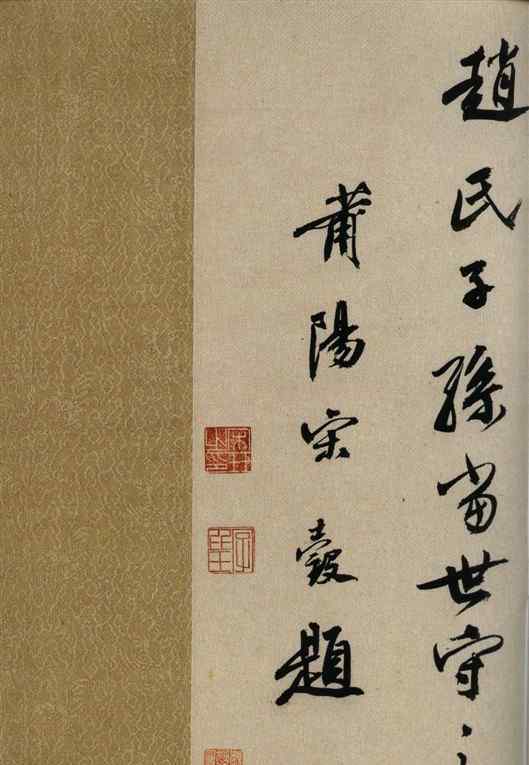 趙氏子孫當世守之
莆陽宋瑴題